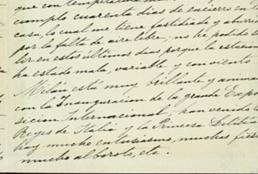 que con temperatura
cumplo cuarenta dias de encierro en la
casa, lo cual me tiene fastidiado y aburrido
por la falta de aire libre, no he podido sa-
lir en estos últimos dias porque la estacion
ha estado mala, variable y con viento
Milan está muy brillante y animado
con la Inauguracion de la grande Expo-
sicion Internacional; han venido los
Reyes de Italia y la Princesa Letitia
hay mucho entusiasmo, muchas fies
mucho alboroto, etc.